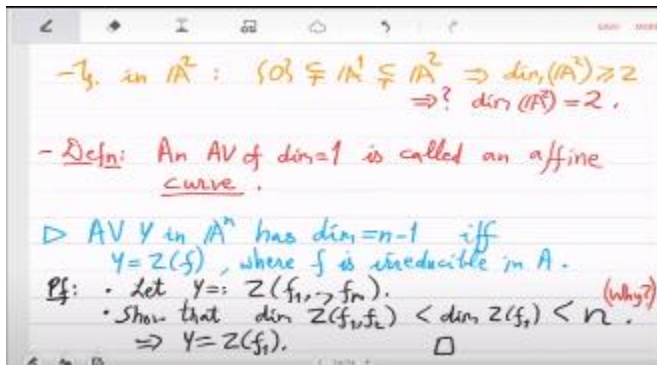 -Eg. in 𝔸² : {0} ⊊ 𝔸¹ ⊊ 𝔸² ⇒ dim(𝔸²) ≥ 2
⇒? dim(𝔸²) = 2.
- Defn: An AV of dim=1 is called an affine
curve.
▷ AV Y in 𝔸ⁿ has dim=n-1 iff
Y=Z(f), where f is irreducible in A.
Pf: • Let Y=: Z(f₁,..,fₘ). (Why?)
• Show that dim Z(f₁,f₂) < dim Z(f₁) < n.
⇒ Y=Z(f₁). □